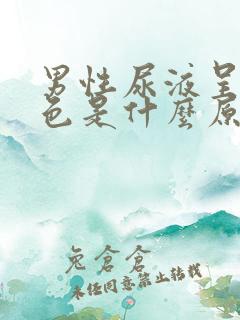 男性尿液呈
色是什麼原
兔倉倉
未經同意禁止轉載